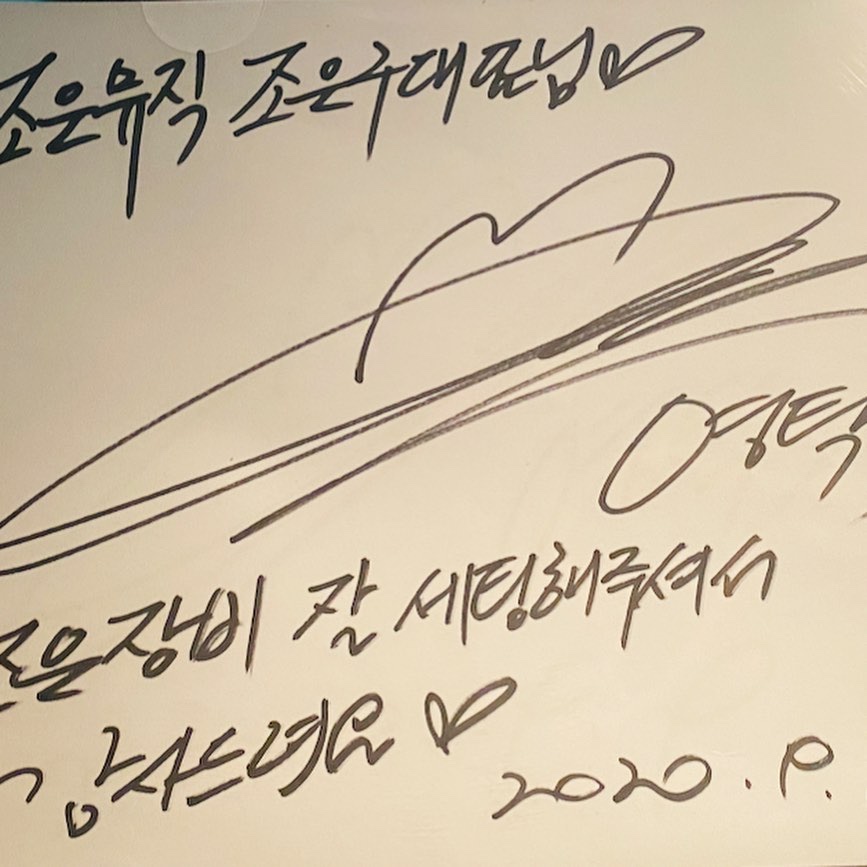 조은뮤직 조은구대표님♡
영탁
조은장비 잘 세팅해주셔서
감사드려요♡
2020.9.